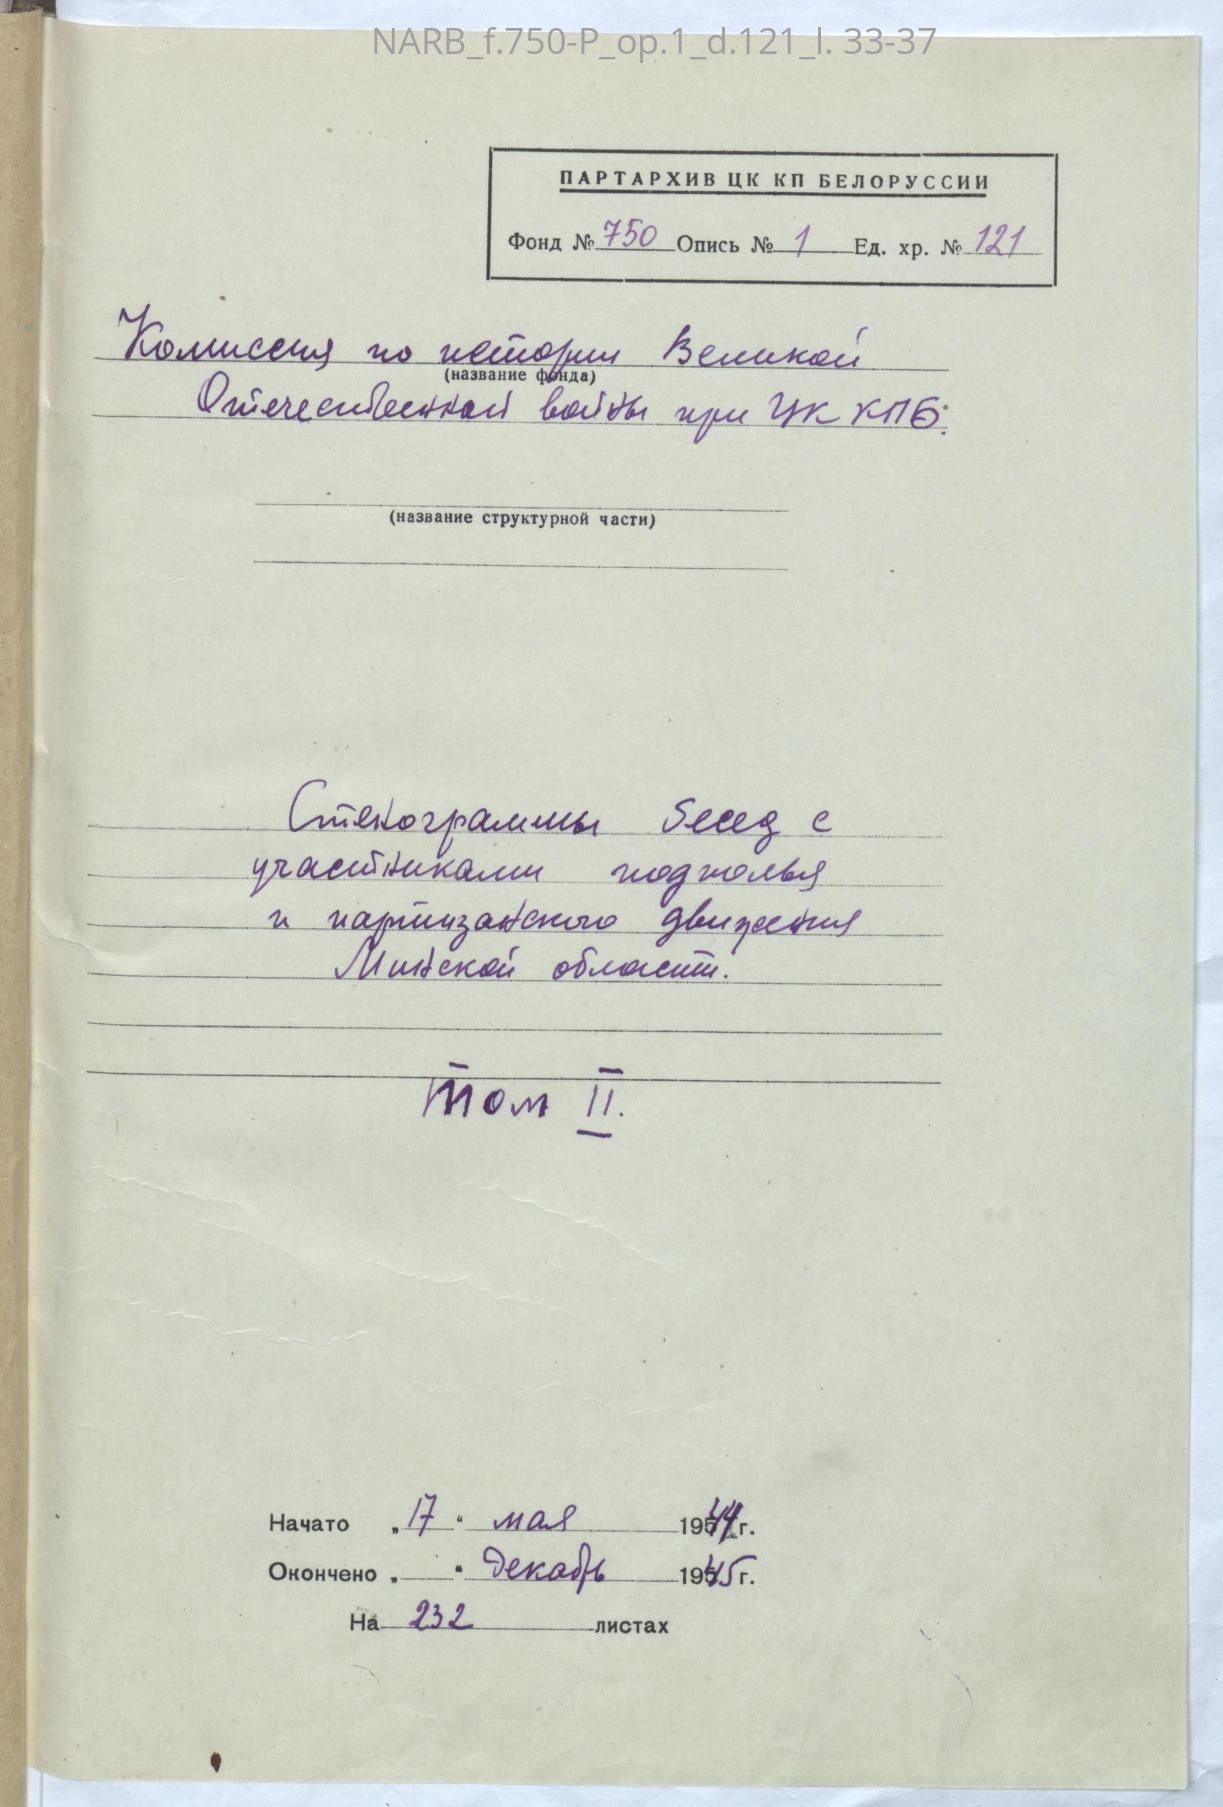 NARB_f.750-P_op.1_d.121_l. 33-37
ПАРТАРХИВ ЦК КП БЕЛОРУССИИ
Фонд № 750 Опись № 1 Ед. хр. № 121
Комиссия по истории Великой
(название фонда)
Отечественной войны при ЦК КПБ.
(название структурной части)
Стенограммы бесед с
участниками подполья
и партизанского движения
Минской области.
Том II.
Начато „17“ мая 1944 г.
Окончено „ “ Декабрь 1945 г.
На 232 листах